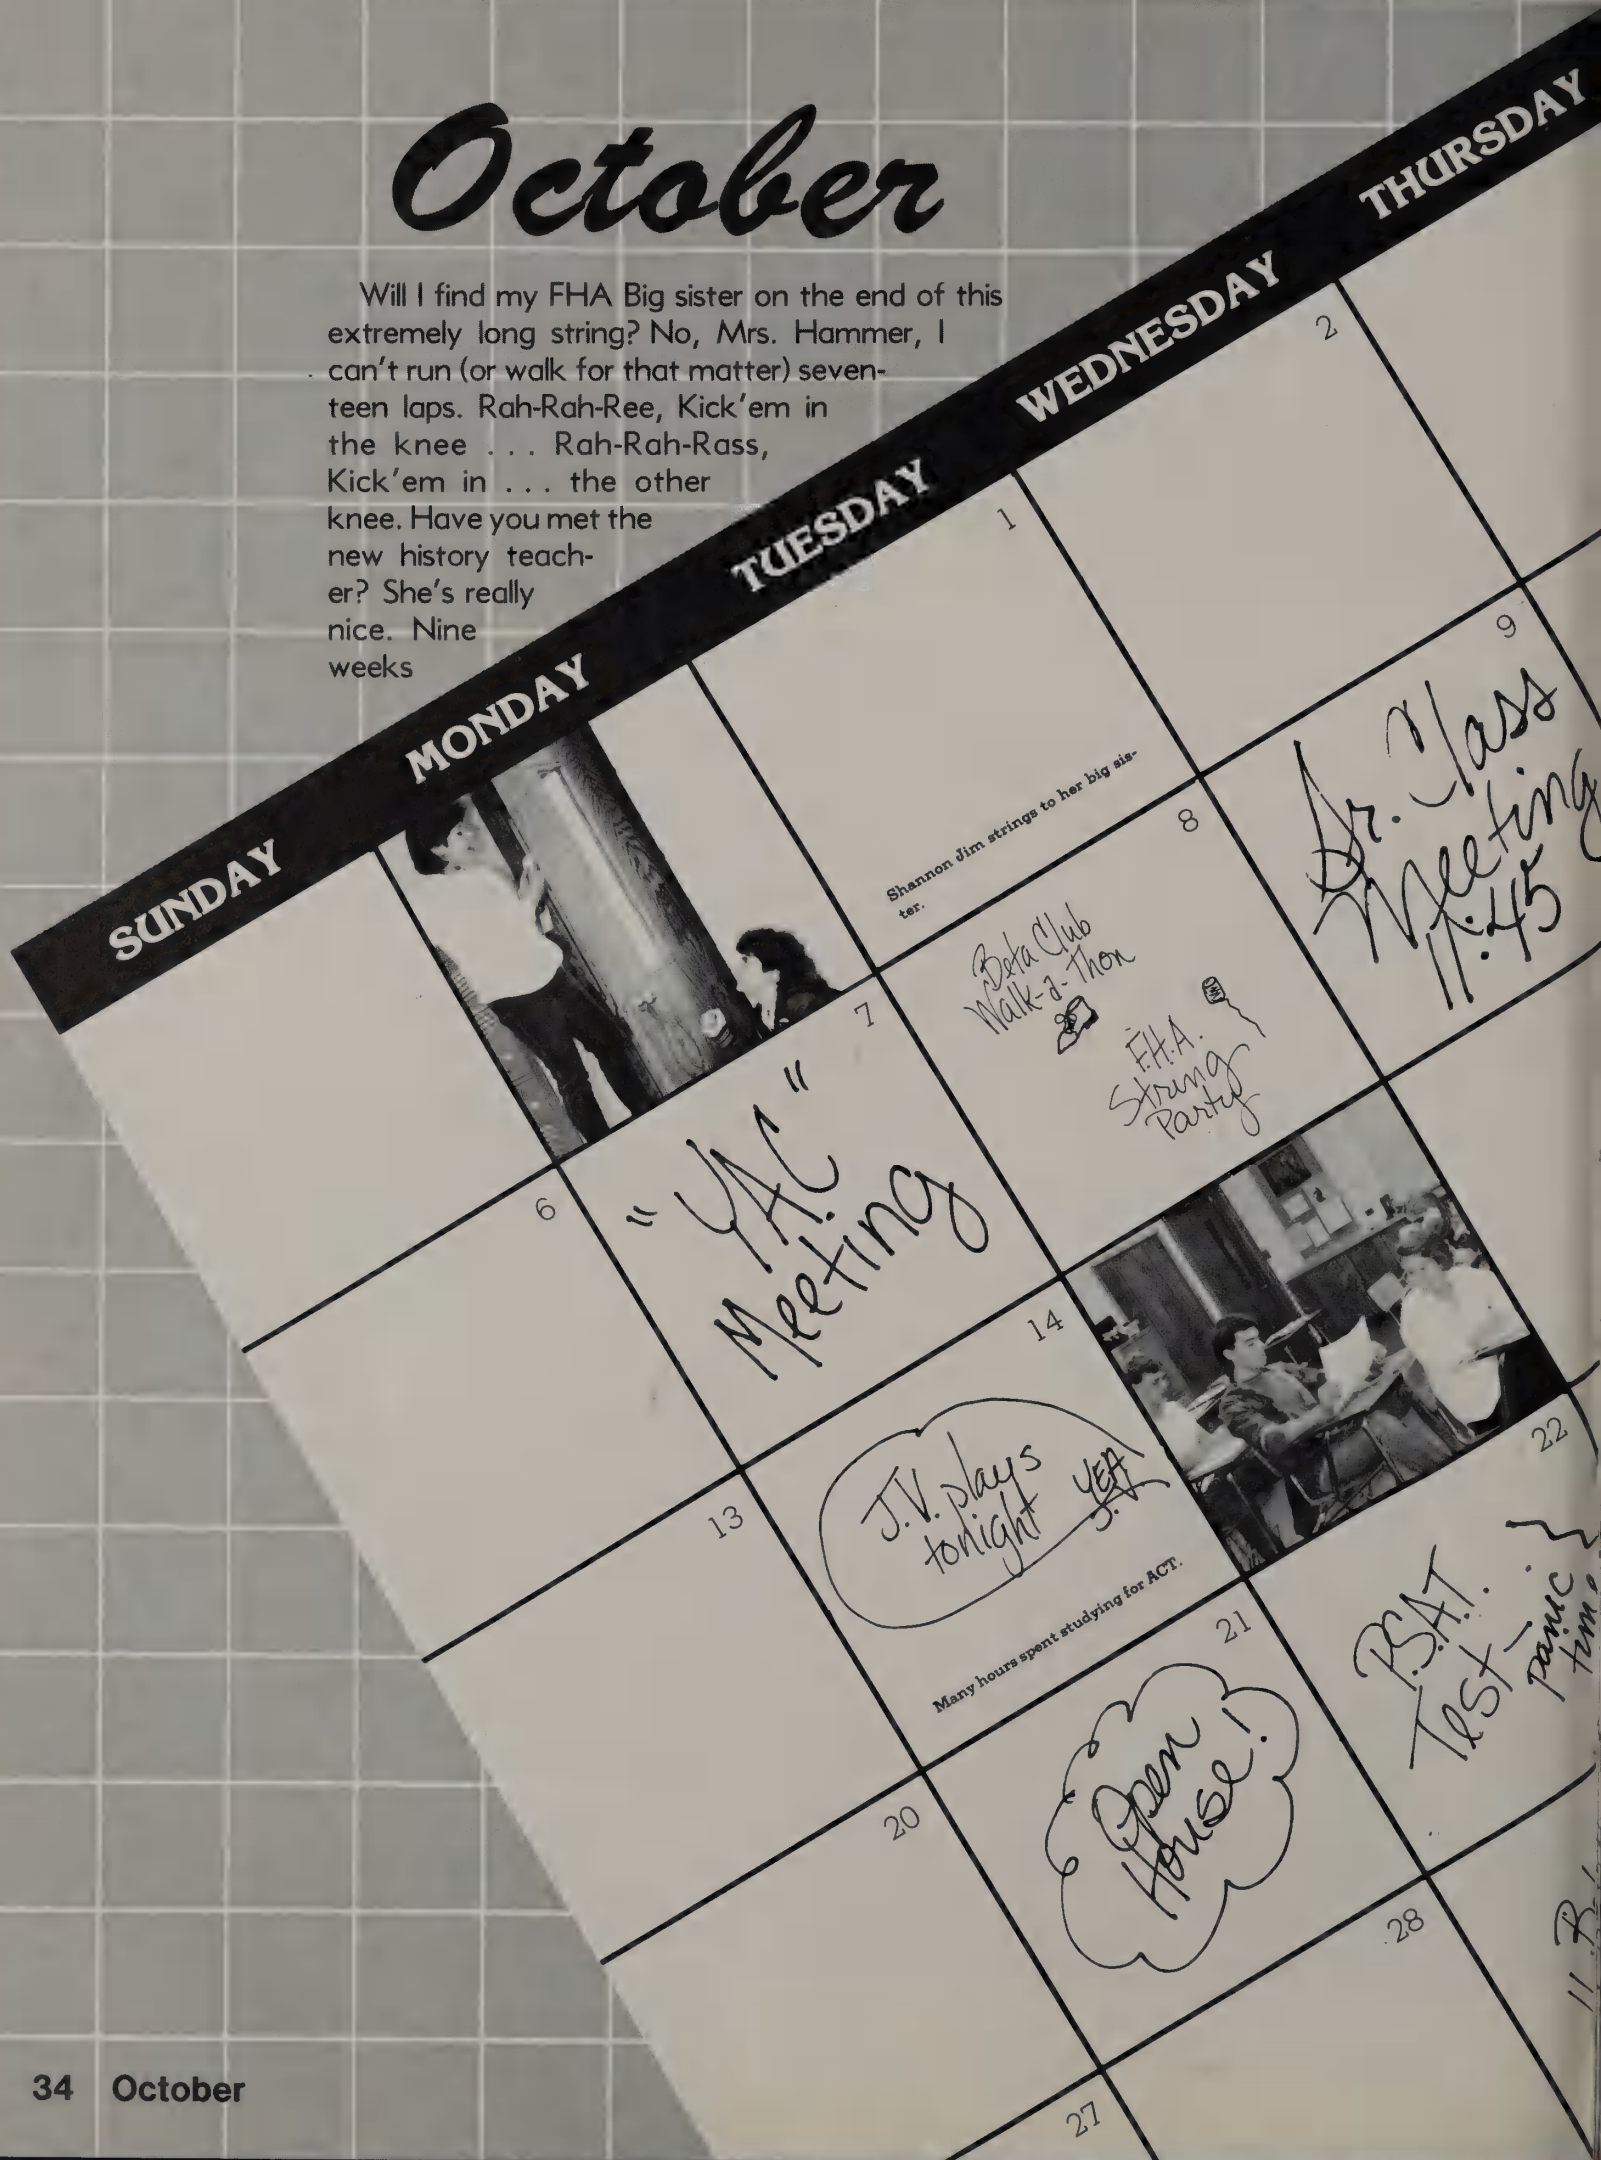 October
Will I find my FHA Big sister on the end of this
extremely long string? No, Mrs. Hammer, I
can't run (or walk for that matter) seven-
teen laps. Rah-Rah-Ree, Kick'em in
the knee . . . Rah-Rah-Rass,
Kick'em in . . . the other
knee. Have you met the
new history teach-
er? She's really
nice. Nine
weeks
SUNDAY
MONDAY
TUESDAY
WEDNESDAY
THURSDAY
1
2
Shannon Jim strings to her big sis-
ter.
6
7
"YAC"
Meeting
8
Beta Club
Walk-a-Thon
F.H.A.
String
Party
9
Sr. Class
Meeting
11:45
13
14
J.V. plays
tonight
YEA
J.V.
Many hours spent studying for ACT.
20
21
Open
House!
22
P.S.A.T.
Test-
panic
27
28
34 October